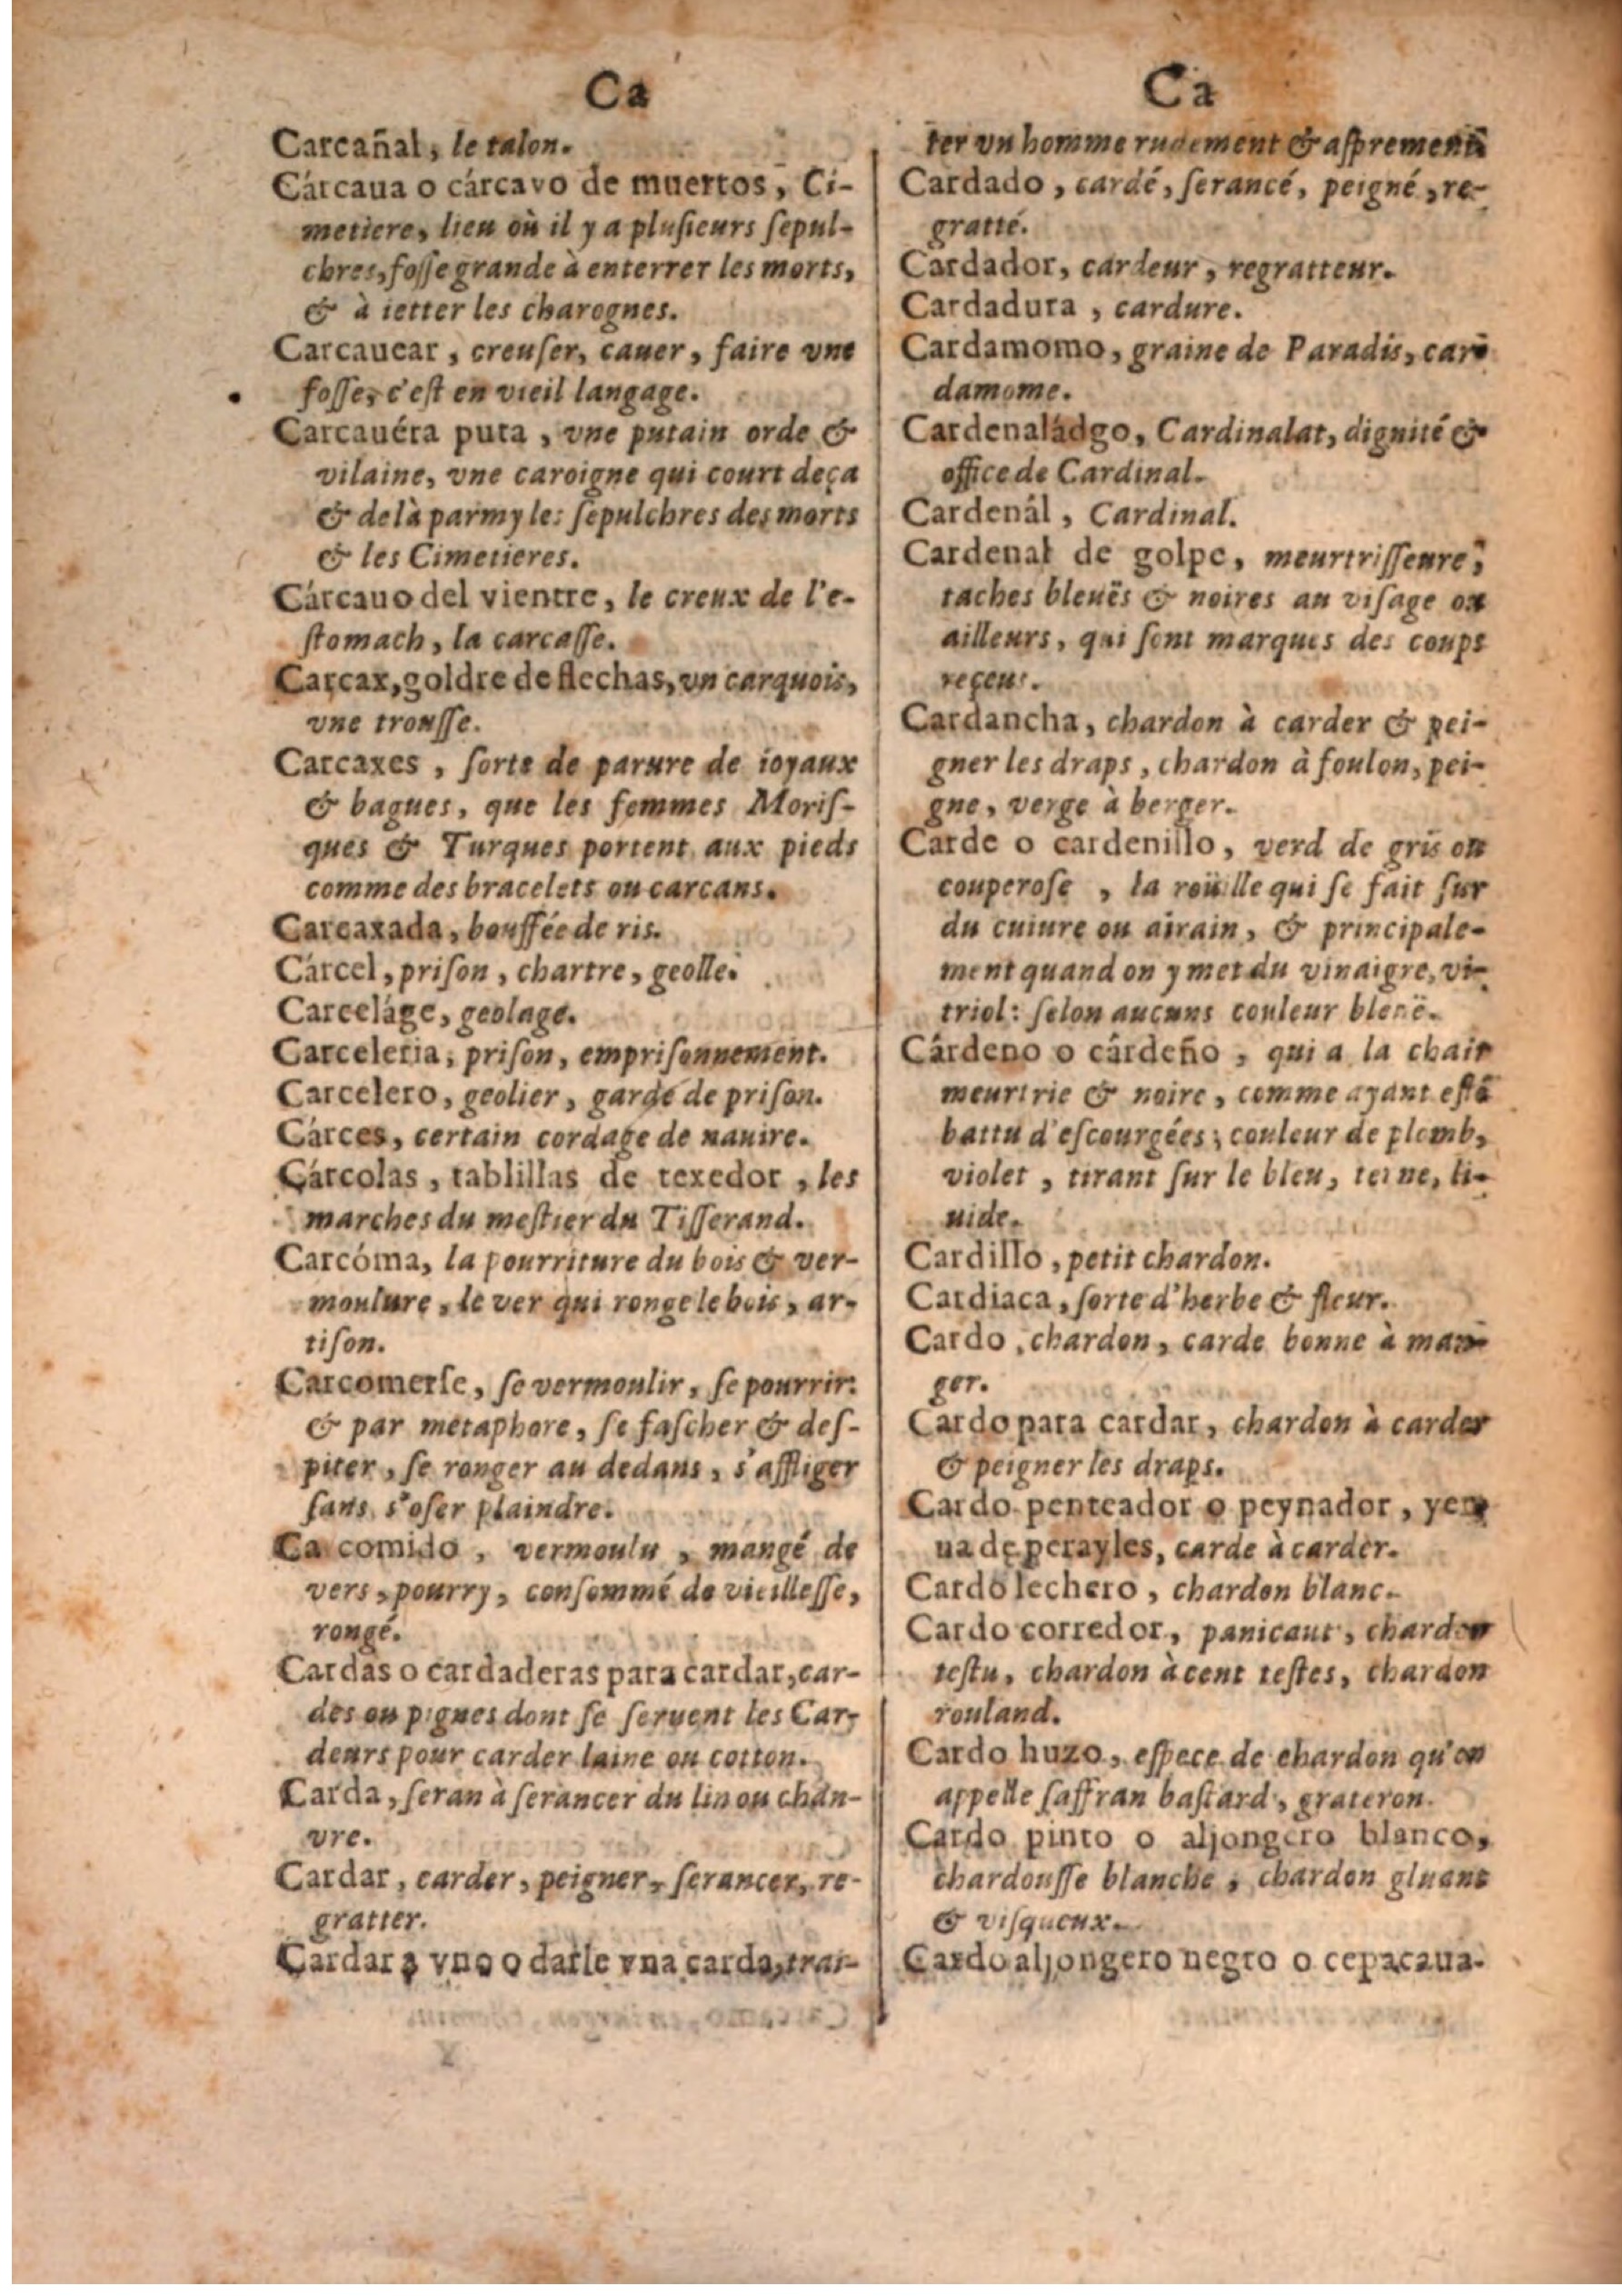 Ca
Carcañal, le talon.
Cárcaua o cárcavo de muertos, Ci-
metiere, lieu où il y a pluſieurs ſepul-
chres, foſſe grande à enterrer les morts,
& à ietter les charognes.
Carcauear, creuſer, cauer, faire vne
foſſe, c'eſt en vieil langage.
Carcauéra puta, vne putain orde &
vilaine, vne caroigne qui court deça
& delà parmy les ſepulchres des morts
& les Cimetieres.
Cárcauo del vientre, le creux de l'e-
ſtomach, la carcaſſe.
Carcax, goldre de flechas, vn carquois,
vne trouſſe.
Carcaxes, ſorte de parure de ioyaux
& bagues, que les femmes Moriſ-
ques & Turques portent aux pieds
comme des bracelets ou carcans.
Carcaxada, bouffée de ris.
Cárcel, priſon, chartre, geolle.
Carceláge, geolage.
Carceleria, priſon, empriſonnement.
Carcelero, geolier, garde de priſon.
Cárces, certain cordage de nauire.
Cárcolas, tablillas de texedor, les
marches du meſtier du Tiſſerand.
Carcóma, la pourriture du bois & ver-
moulure, le ver qui ronge le bois, ar-
tiſon.
Carcomerſe, ſe vermoulir, ſe pourrir:
& par metaphore, ſe faſcher & deſ-
piter, ſe ronger au dedans, s'affliger
ſans s'oſer plaindre.
Ca comido, vermoulu, mangé de
vers, pourry, conſommé de vieilleſſe,
rongé.
Cardas o cardaderas para cardar, car-
des ou pignes dont ſe ſeruent les Car-
deurs pour carder laine ou cotton.
Carda, ſeran à ſerancer du lin ou chan-
vre.
Cardar, carder, peigner, ſerancer, re-
gratter.
Cardar a vno o darle vna carda, trai-
Ca
ter vn homme rudement & aſprement
Cardado, cardé, ſerancé, peigné, re-
gratté.
Cardador, cardeur, regratteur.
Cardadura, cardure.
Cardamomo, graine de Paradis, car-
damome.
Cardenaládgo, Cardinalat, dignité &
office de Cardinal.
Cardenál, Cardinal.
Cardenal de golpe, meurtriſſeure,
taches bleuës & noires au viſage ou
ailleurs, qui ſont marques des coups
reçeus.
Cardancha, chardon à carder & pei-
gner les draps, chardon à foulon, pei-
gne, verge à berger.
Carde o cardenillo, verd de gris ou
couperoſe, la roüille qui ſe fait ſur
du cuiure ou airain, & principale-
ment quand on y met du vinaigre, vi-
triol: ſelon aucuns couleur bleuë.
Cárdeno o cárdeño, qui a la chair
meurtrie & noire, comme ayant eſté
battu d'eſcourgées; couleur de plomb,
violet, tirant ſur le bleu, terne, li-
uide.
Cardillo, petit chardon.
Cardiaca, ſorte d'herbe & fleur.
Cardo, chardon, carde bonne à man-
ger.
Cardo para cardar, chardon à carder
& peigner les draps.
Cardo penteador o peynador, yer-
ua de perayles, carde à carder.
Cardo lechero, chardon blanc.
Cardo corredor, panicaut, chardon
teſtu, chardon à cent teſtes, chardon
rouland.
Cardo huzo, eſpece de chardon qu'on
appelle ſaffran baſtard, grateron.
Cardo pinto o aljongero blanco,
chardouſſe blanche, chardon gluant
& viſqueux.
Cardo aljongero negro o cepacaua-